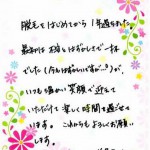 脱毛をはじめてから1年過ぎました。
最初は不安とはずかしさで一杯
でした(今もはずかしいですが…)が、
いつも暖かい笑顔で迎えて
いただけて楽しく時間を過ごせて
います。これからもよろしくお願い
します。